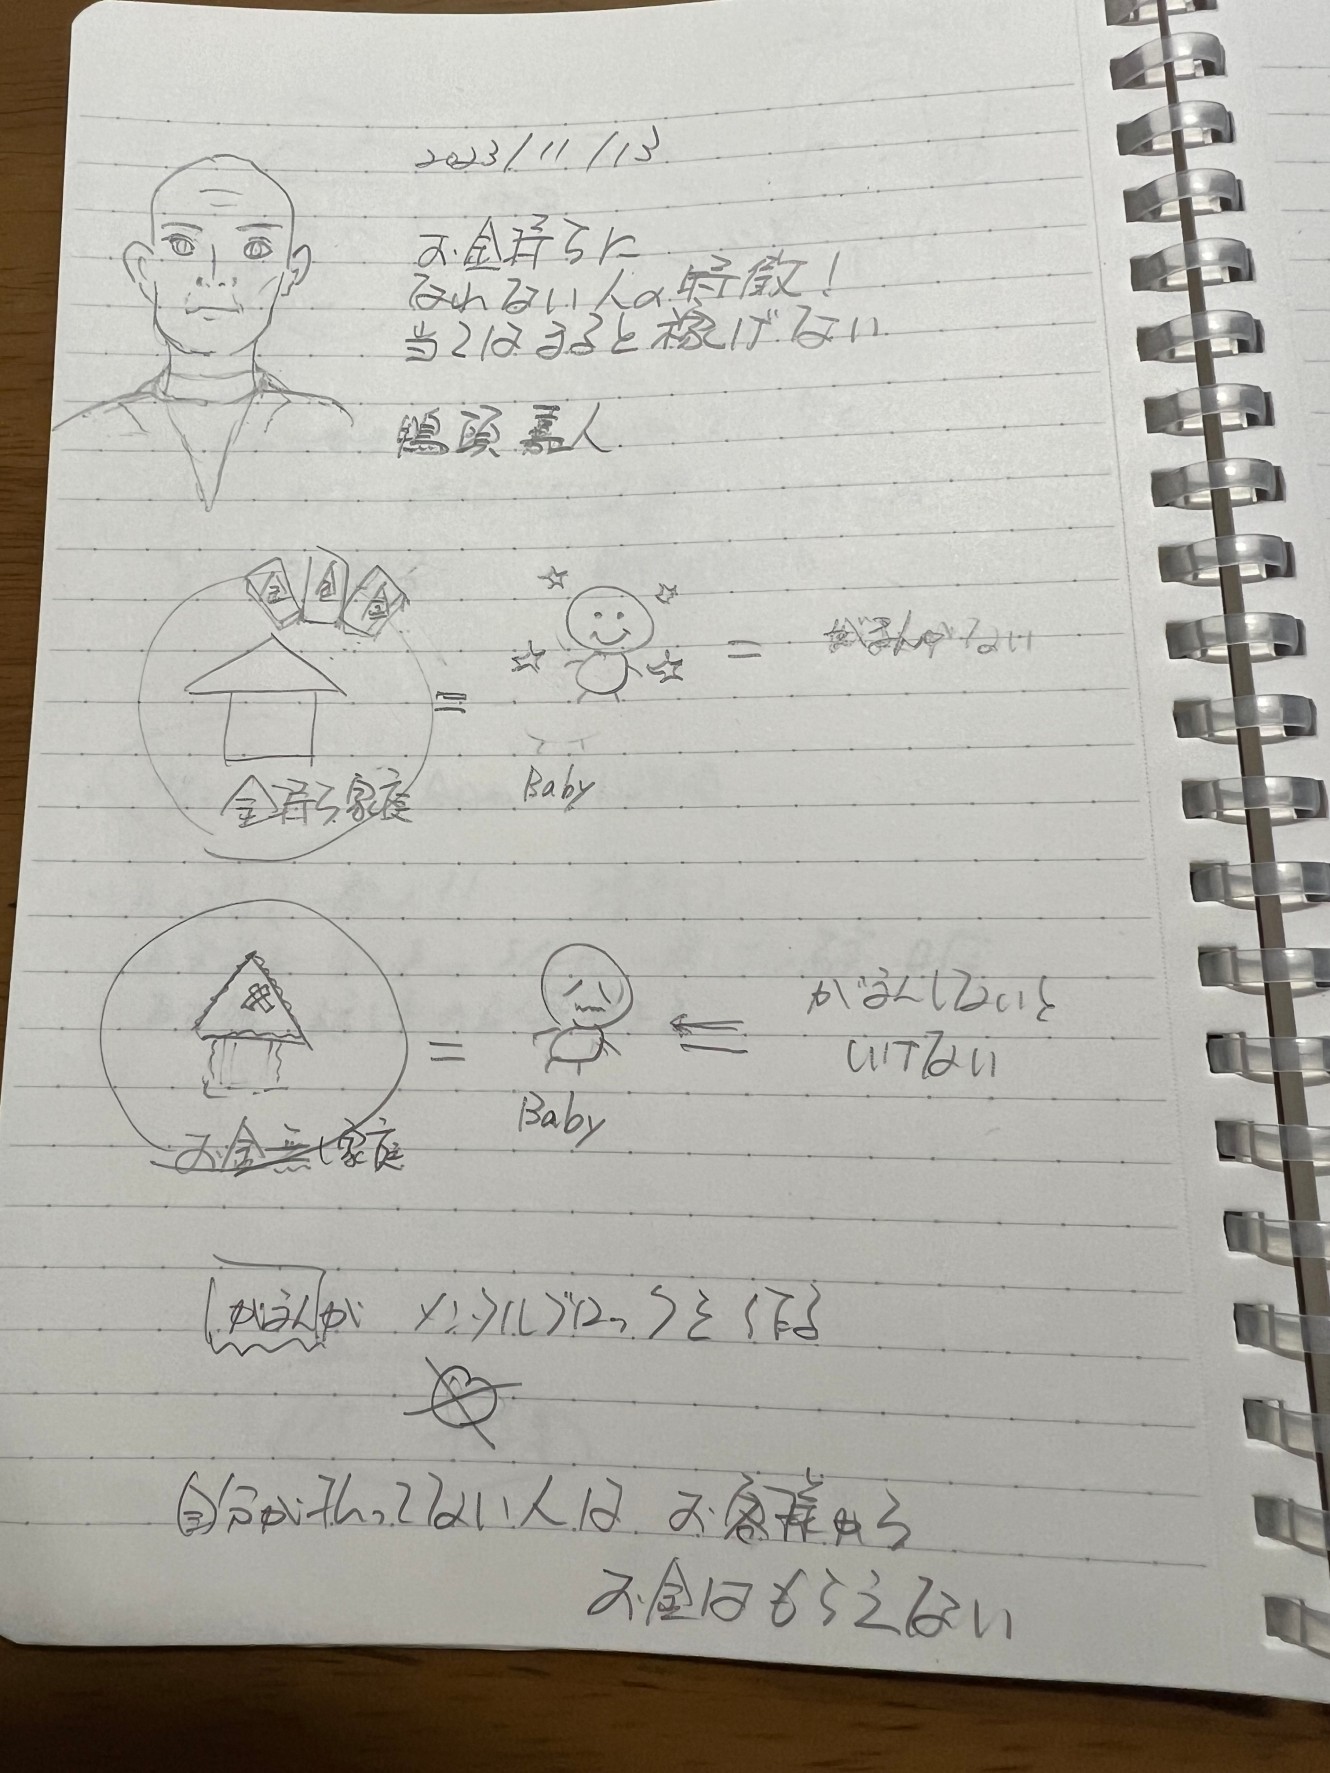 2023/11/13
お金持ちに
なれない人の特徴!
当てはまると稼げない
鴨頭嘉人
金 金 金
= = がまんがない
金持ち家庭
Baby
= がまんしないと
いけない
Baby
お金無し家庭
がまんが メンタルブロックを作る
自分が払ってない人は お客様から
お金はもらえない